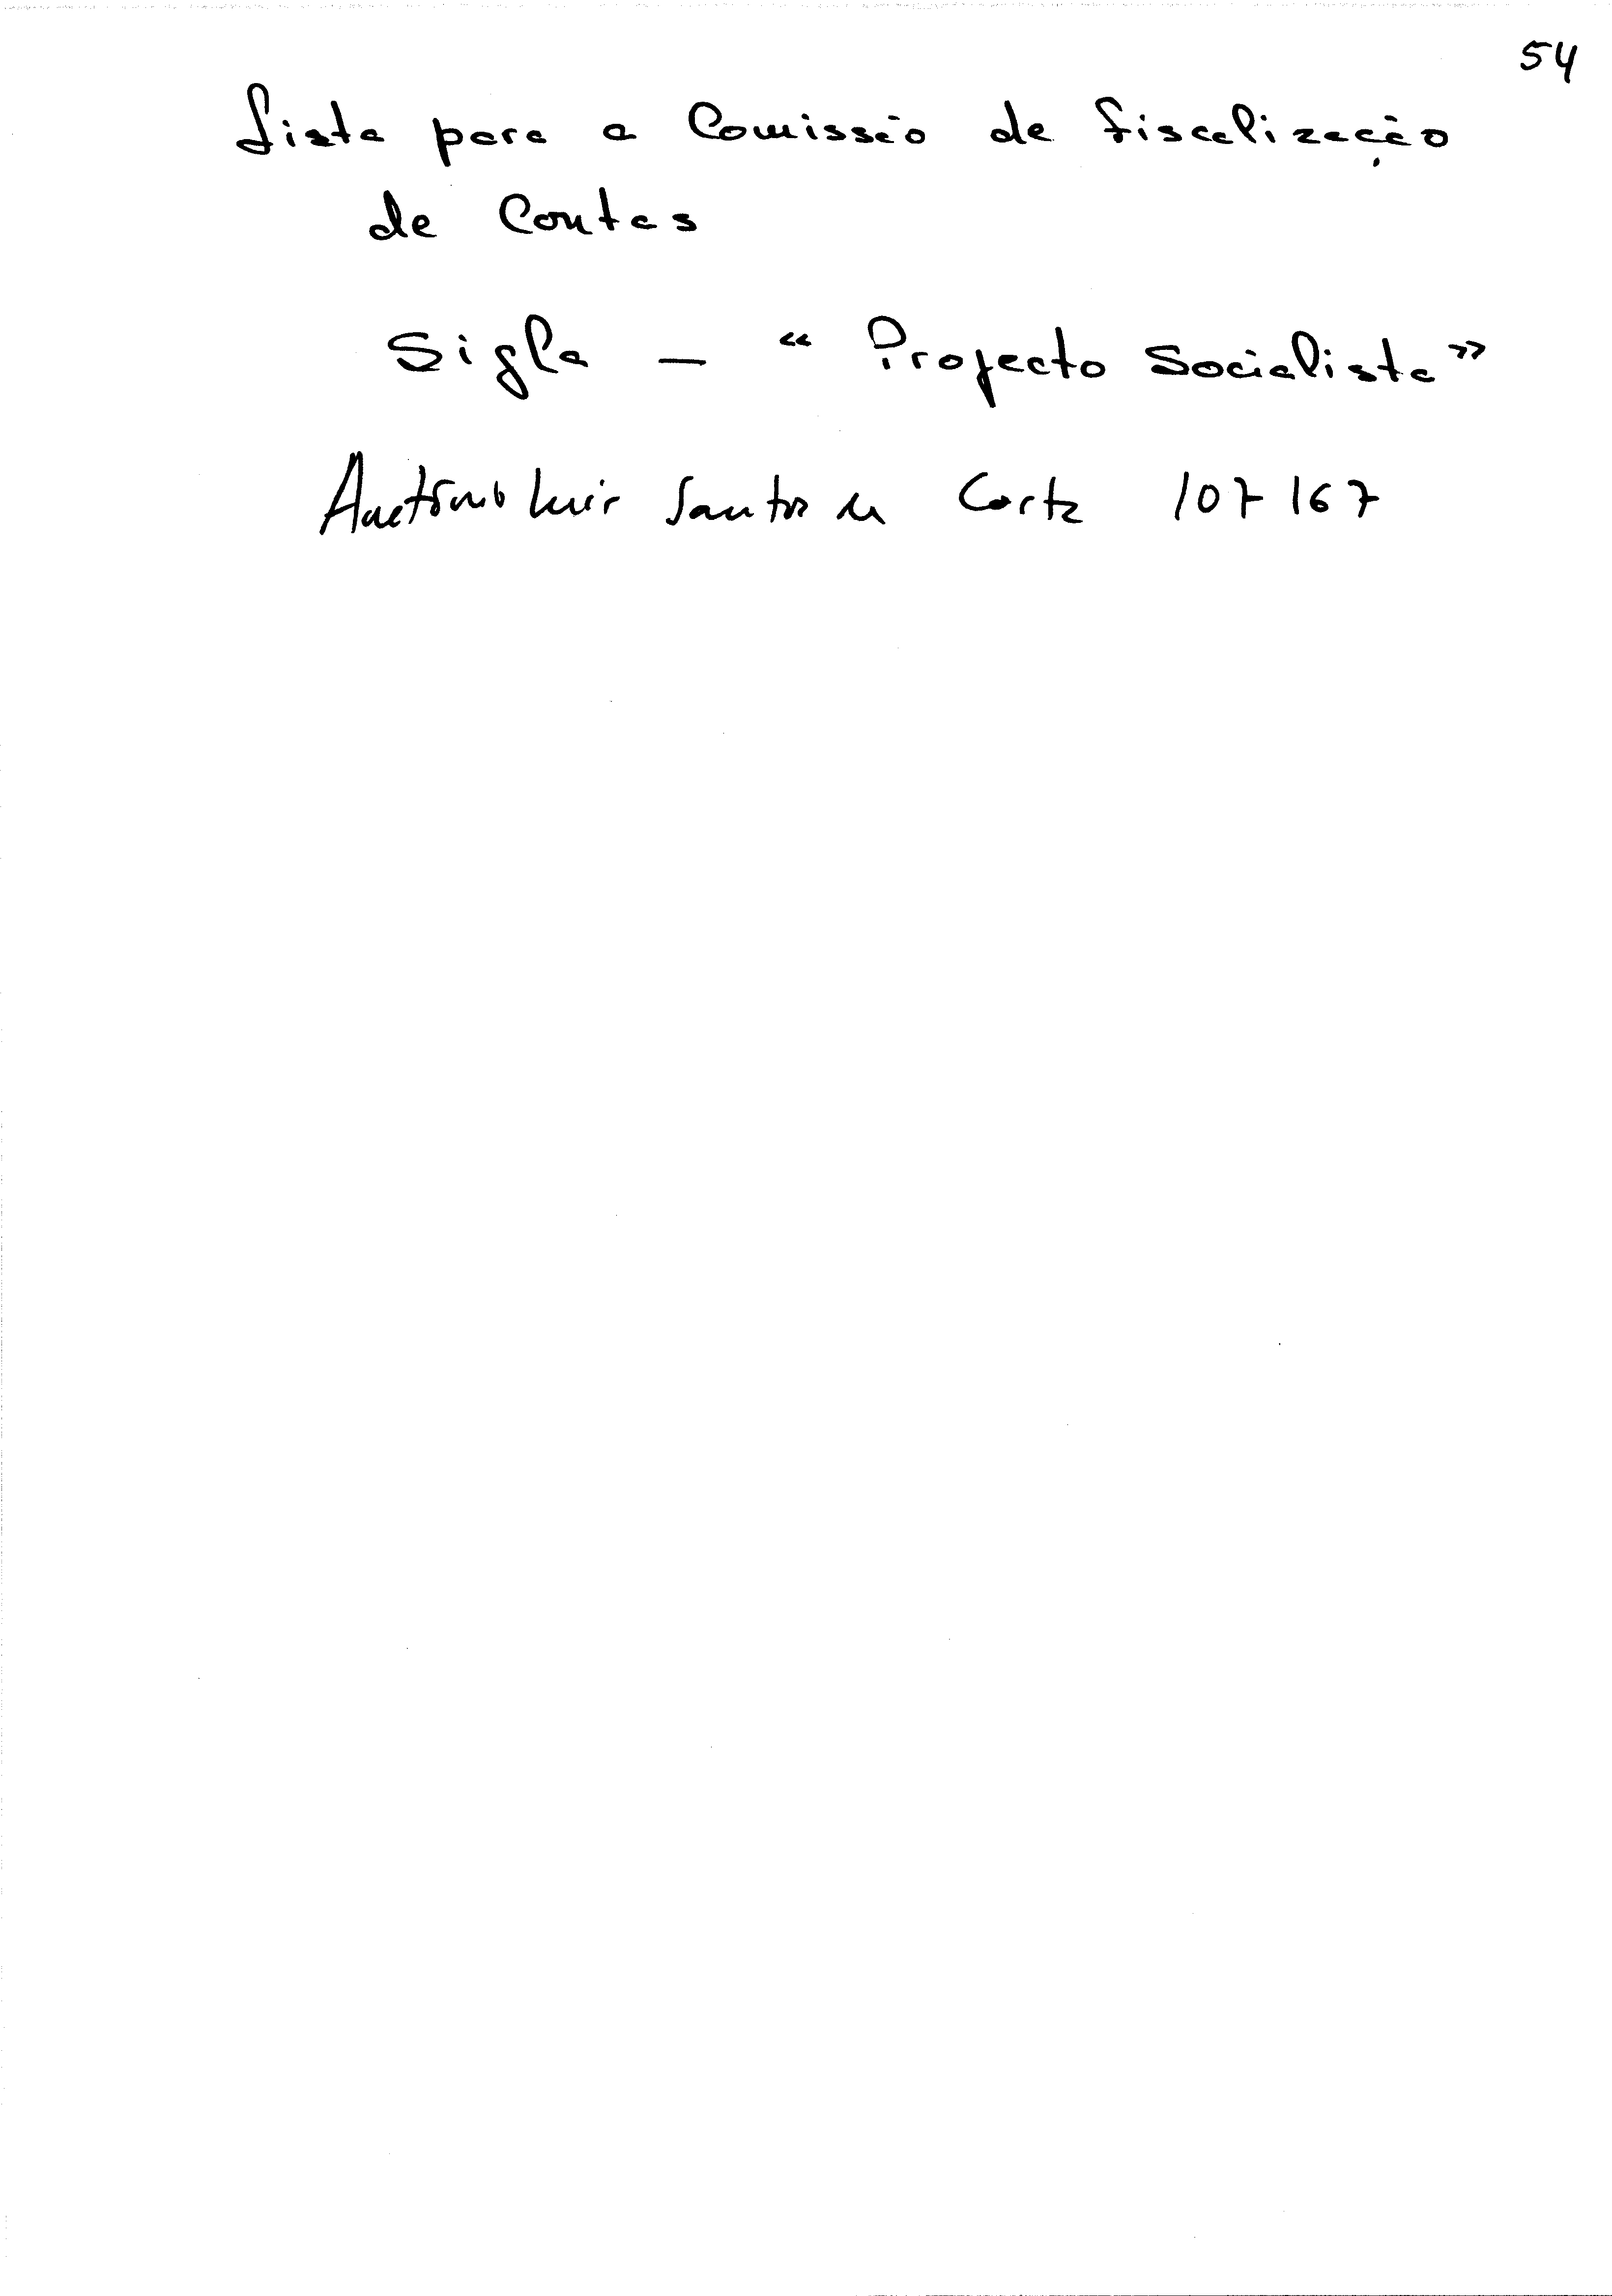 54
Lista para a Comissão de Fiscalização
de Contas
Sigla - “Projecto Socialista”
António Luis Santos da Costa 107167